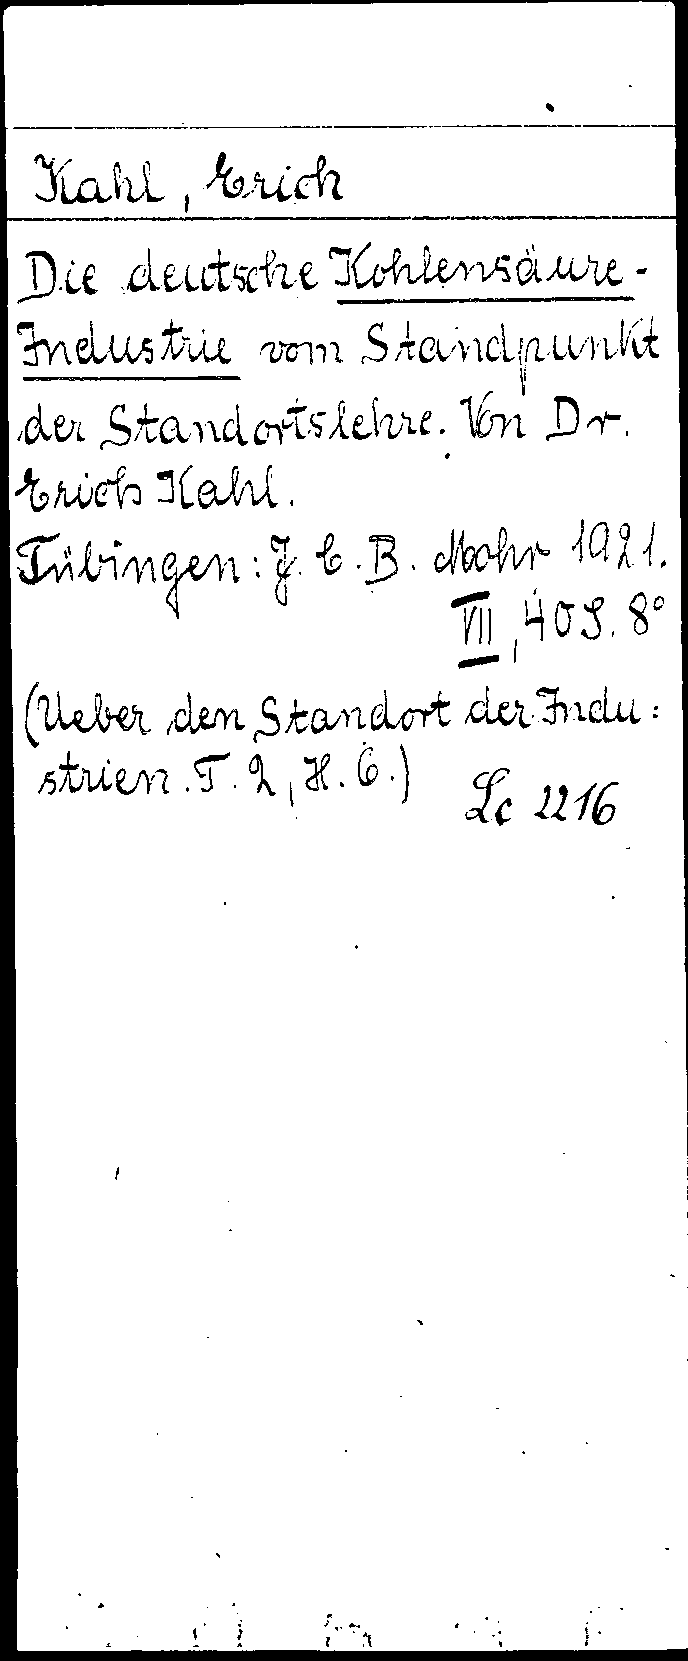 Kahl, Erich
Die deutsche Kohlensäure-
Industrie vom Standpunkt
der Standortslehre. Von Dr.
Erich Kahl.
Tübingen: J. C. B. Mohr 1921.
VII, 40 S. 8°
(Ueber den Standort der Indu:
strien. T. 2, H. 6.)
Lc 2216